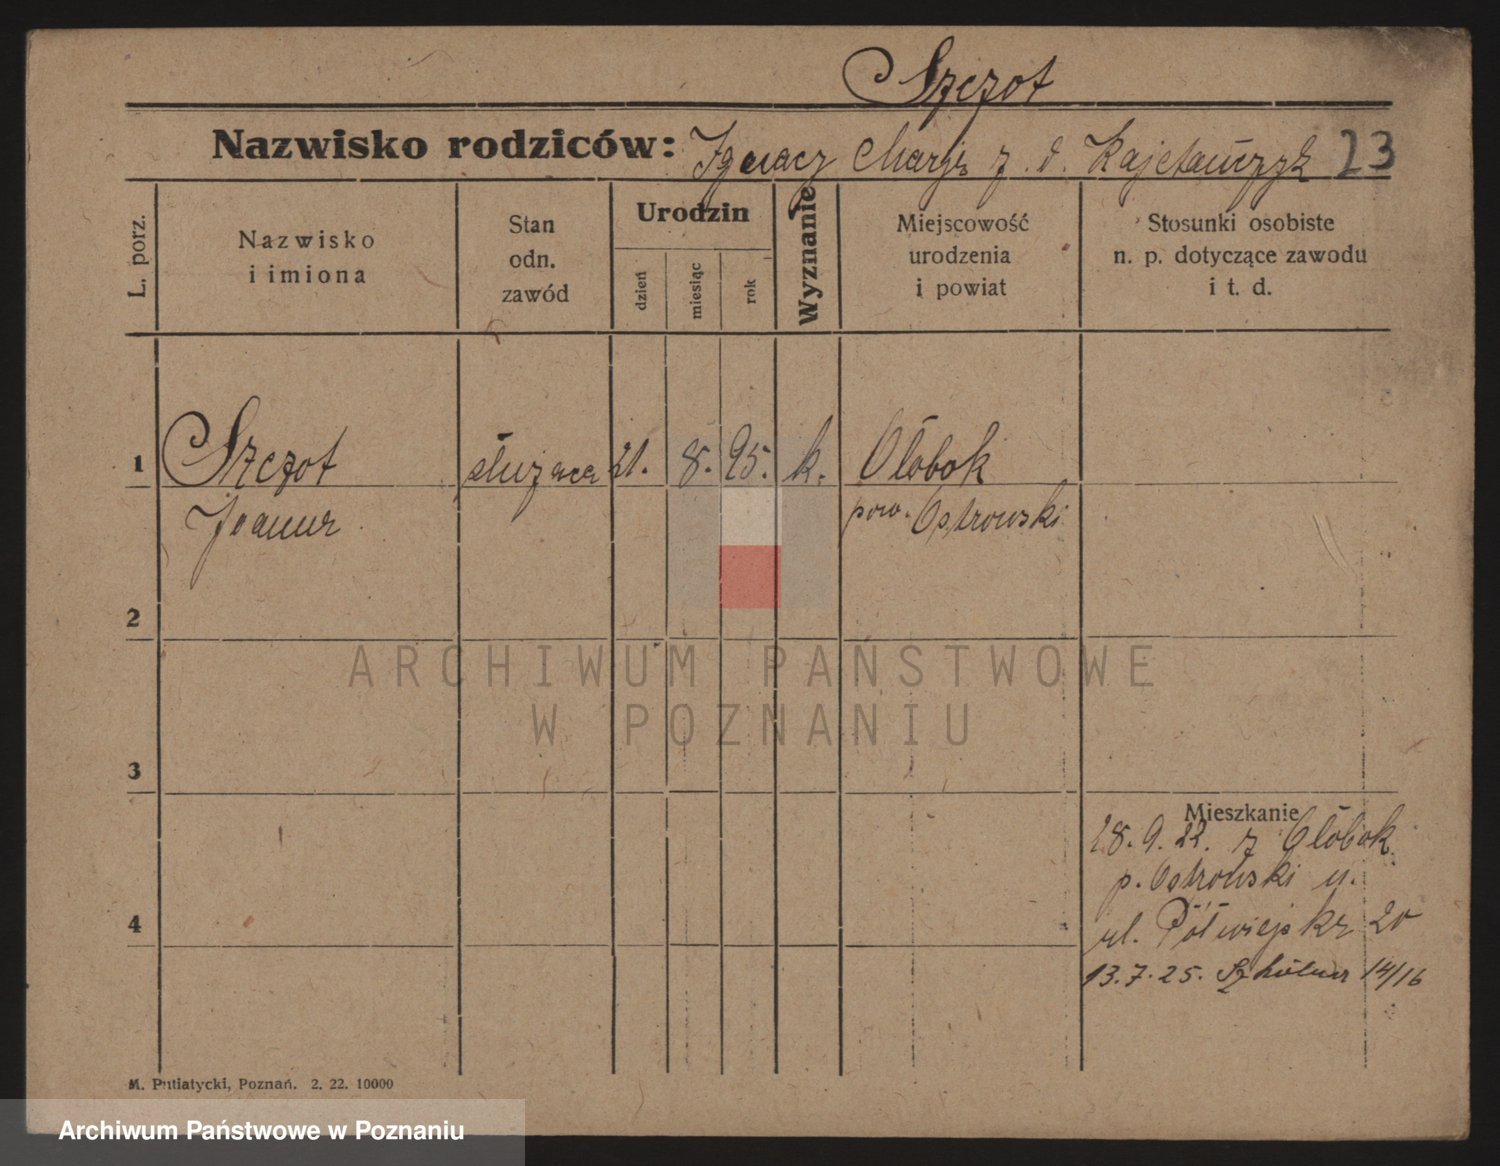 Szczot
Nazwisko rodziców: Ignacy Marja z. d. Kajetańczyk 23
L. porz.
Nazwisko
i imiona
Stan
odn.
zawód
Urodzin
dzień
miesiąc
rok
Wyznanie
Miejscowość
urodzenia
i powiat
Stosunki osobiste
n. p. dotyczące zawodu
i t. d.
1 Szczot służąca 21. 8. 95. k. Ołobok
Joanna pow. Ostrowski
2
ARCHIWUM PAŃSTWOWE
W POZNANIU
3
Mieszkanie
28. 9. 22. z Ołobok
p. Ostrowski n.
4
ul. Półwiejska 20
13. 7. 25. Szkolna 14/16
M. Putiatycki, Poznań. 2. 22. 10000
Archiwum Państwowe w Poznaniu